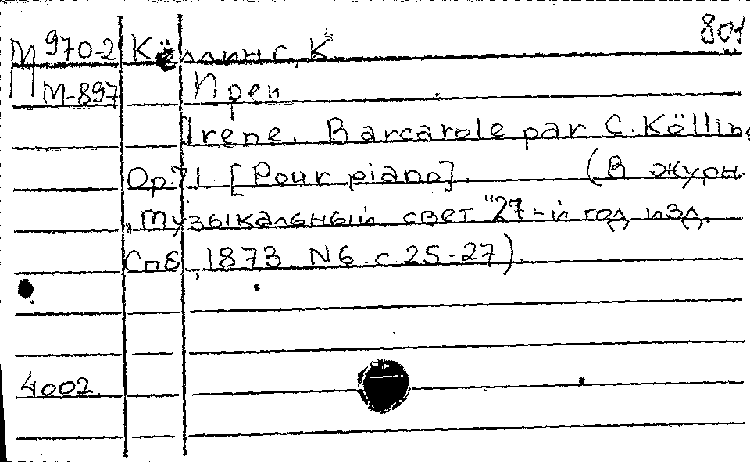 801
М 970-2 Кёллинг, К
М-897 Ирен
Irene. Barcarole par C. Kölling
Op. 71. [Pour piano]. (В журн.
"Музыкальный свет" 27-й год изд.
Спб, 1873 N6 с 25-27).
4002